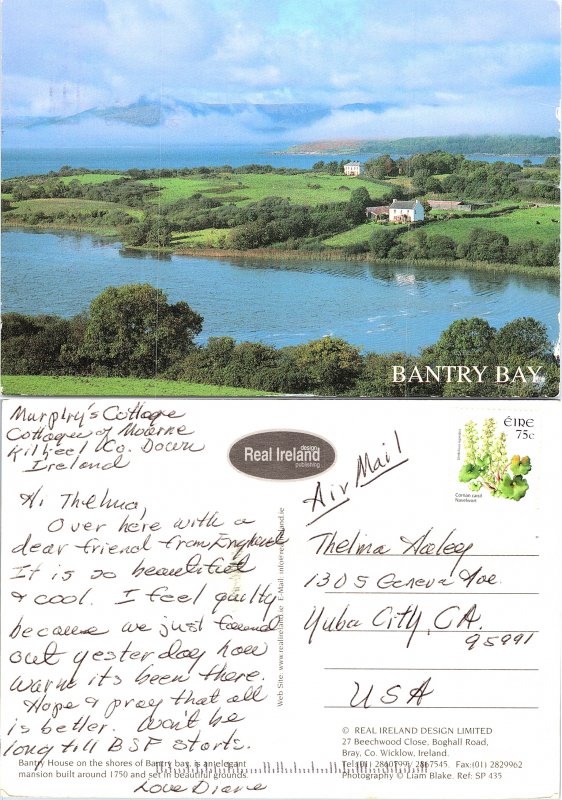 BANTRY BAY
Murphy's Cottage
Cottages of Mourne
Kilkeel Co. Down
Ireland
Hi Thelma,
Over here with a
dear friend from England
It is so beautiful
& cool. I feel guilty
because we just found
out yesterday how
warm its been there.
Hope & pray that all
is better. Won't be
long till BSF starts.
Love Diane
Bantry House on the shores of Bantry bay, is an elegant
mansion built around 1750 and set in beautiful grounds.
Real Ireland
design
publishing
Web Site: www.realireland.ie E-Mail: info@realireland.ie
ÉIRE
75c
Cornán caisil
Navelwort
Air Mail
Thelma
1305 Geneva Ave.
Yuba City, CA.
95991
USA
© REAL IRELAND DESIGN LIMITED
27 Beechwood Close, Boghall Road,
Bray, Co. Wicklow, Ireland.
Tel:(01) 2860799, 2867545. Fax:(01) 2829962
Photography © Liam Blake. Ref: SP 435